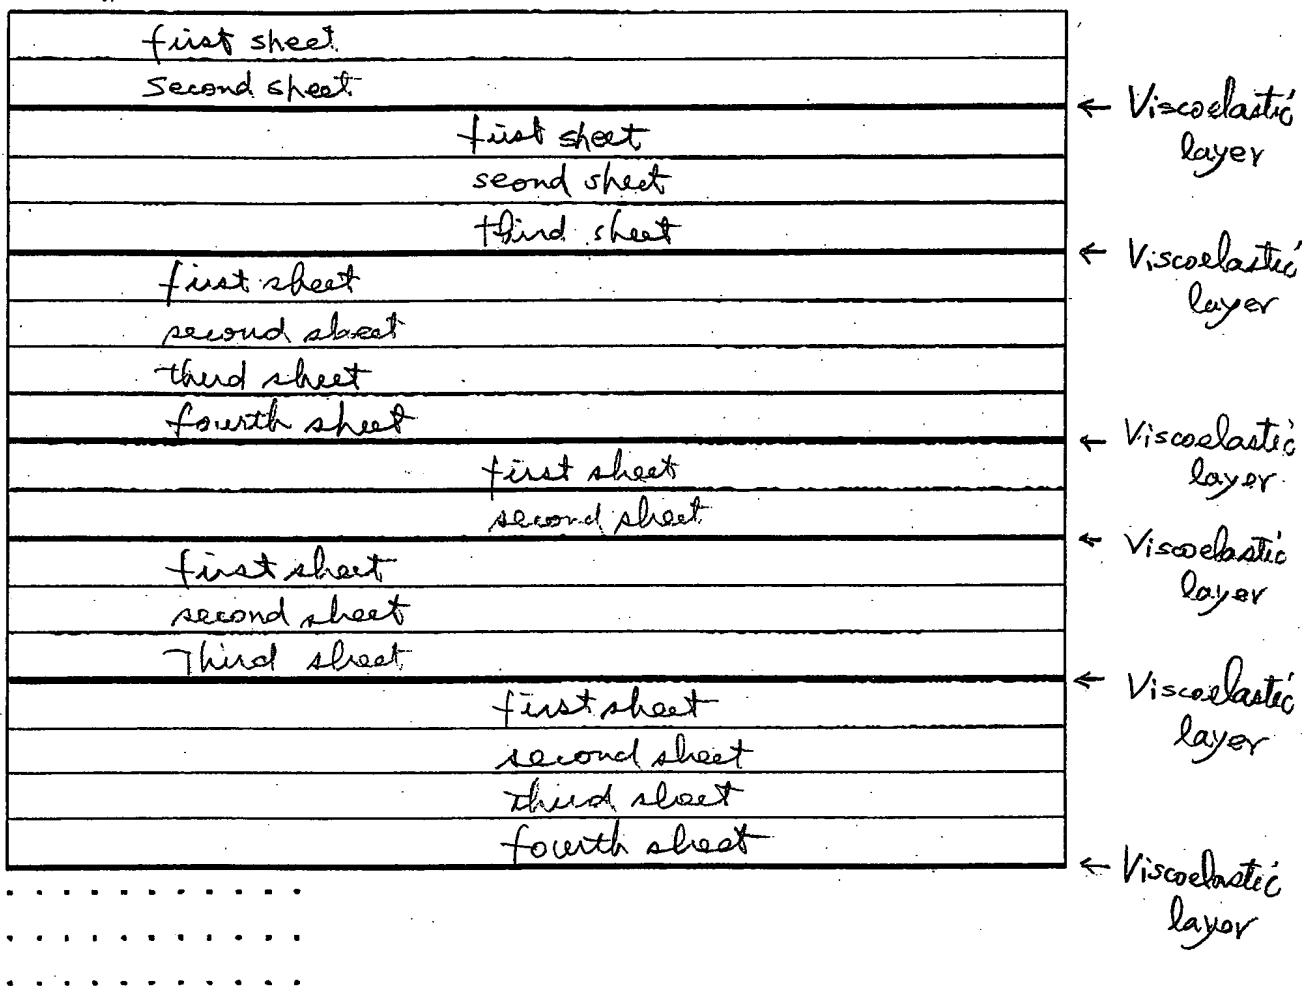 first sheet
Second sheet
← Viscoelastic
layer
first sheet
seond sheet
third sheet
← Viscoelastic
layer
first sheet
second sheet
third sheet
fourth sheet
← Viscoelastic
layer
first sheet
second sheet
← Viscoelastic
layer
first sheet
second sheet
Third sheet
← Viscoelastic
layer
first sheet
second sheet
third sheet
fourth sheet
← Viscoelastic
layer